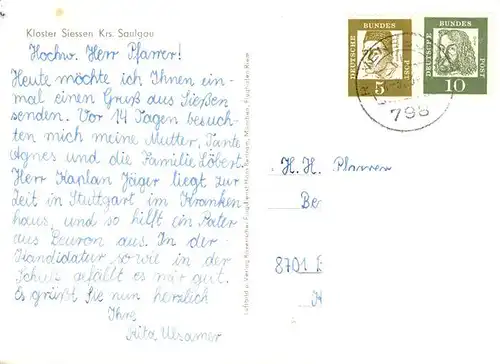 Kloster Siessen Krs. Saulgau
Hochw. Herr Pfarrer!
Heute möchte ich Ihnen ein-
mal einen Gruß aus Sießen
senden. Vor 14 Tagen besuch-
ten mich meine Mutter, Tante
Agnes und die Familie Löbert.
Herr Kaplan Jäger liegt zur
Zeit in Stuttgart im Kranken
haus, und so hilft ein Pater
aus Beuron aus. In der
Kandidatur sowie in der
Schule gefällt es mir gut.
Es grüßt Sie nun herzlich
Ihre
Rita Ulsamer
DEUTSCHE BUNDES POST
5
DEUTSCHE BUNDES POST
10
795
H. H. Pfarrer
Be
8701
H